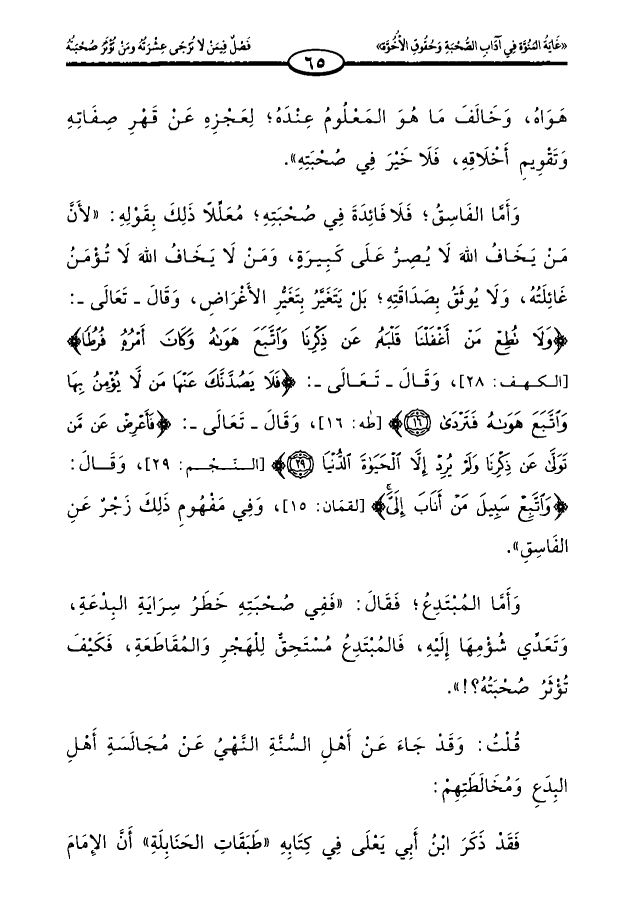 «غَايَةُ المُنُوَّة فِي آدَابِ الصُّحْبَةِ وَحُقُوقِ الأُخُوَّة» فَصْلٌ فِيمَنْ لَا تُرْجَى عِشْرَتُهُ ومَنْ تُؤْثَرُ صُحْبَتُهُ
٦٥
هَوَاهُ، وَخَالَفَ مَا هُوَ المَعْلُومُ عِنْدَهُ؛ لِعَجْزِهِ عَنْ قَهْرِ صِفَاتِهِ
وَتَقْوِيمِ أَخْلَاقِهِ، فَلَا خَيْرَ فِي صُحْبَتِهِ».
وَأَمَّا الفَاسِقُ؛ فَلَا فَائِدَةَ فِي صُحْبَتِهِ؛ مُعَلِّلًا ذَلِكَ بِقَوْلِهِ: «لأَنَّ
مَنْ يَخَافُ اللهَ لَا يُصِرُّ عَلَى كَبِيرَةٍ، وَمَنْ لَا يَخَافُ اللهَ لَا تُؤْمَنُ
غَائِلَتُهُ، وَلَا يُوثَقُ بِصَدَاقَتِهِ؛ بَلْ يَتَغَيَّرُ بِتَغَيُّرِ الأَغْرَاضِ، وَقَالَ ـ تَعَالَى ـ:
﴿وَلَا نُطِعْ مَنْ أَغْفَلْنَا قَلْبَهُۥ عَن ذِكْرِنَا وَٱتَّبَعَ هَوَىٰهُ وَكَانَ أَمْرُهُۥ فُرُطًا﴾
[الكهف: ٢٨]، وَقَالَ ـ تَعَالَى ـ: ﴿فَلَا يَصُدَّنَّكَ عَنْهَا مَن لَّا يُؤْمِنُ بِهَا
وَٱتَّبَعَ هَوَىٰهُ فَتَرْدَىٰ ١٦﴾ [طه: ١٦]، وَقَالَ ـ تَعَالَى ـ: ﴿فَأَعْرِضْ عَن مَّن
تَوَلَّىٰ عَن ذِكْرِنَا وَلَمْ يُرِدْ إِلَّا ٱلْحَيَوٰةَ ٱلدُّنْيَا ٢٩﴾ [النَّجْم: ٢٩]، وَقَالَ:
﴿وَٱتَّبِعْ سَبِيلَ مَنْ أَنَابَ إِلَىَّ ۚ﴾ [لقمَان: ١٥]، وَفِي مَفْهُومِ ذَلِكَ زَجْرٌ عَنِ
الفَاسِقِ».
وَأَمَّا المُبْتَدِعُ؛ فَقَالَ: «فَفِي صُحْبَتِهِ خَطَرُ سِرَايَةِ البِدْعَةِ،
وَتَعَدِّي شُؤْمِهَا إِلَيْهِ، فَالمُبْتَدِعُ مُسْتَحِقٌّ لِلْهَجْرِ وَالمُقَاطَعَةِ، فَكَيْفَ
تُؤْثَرُ صُحْبَتُهُ؟!».
قُلْتُ: وَقَدْ جَاءَ عَنْ أَهْلِ السُّنَّةِ النَّهْيُ عَنْ مُجَالَسَةِ أَهْلِ
البِدَعِ وَمُخَالَطَتِهِمْ:
فَقَدْ ذَكَرَ ابْنُ أَبِي يَعْلَى فِي كِتَابِهِ «طَبَقَاتِ الحَنَابِلَةِ» أَنَّ الإِمَامَ